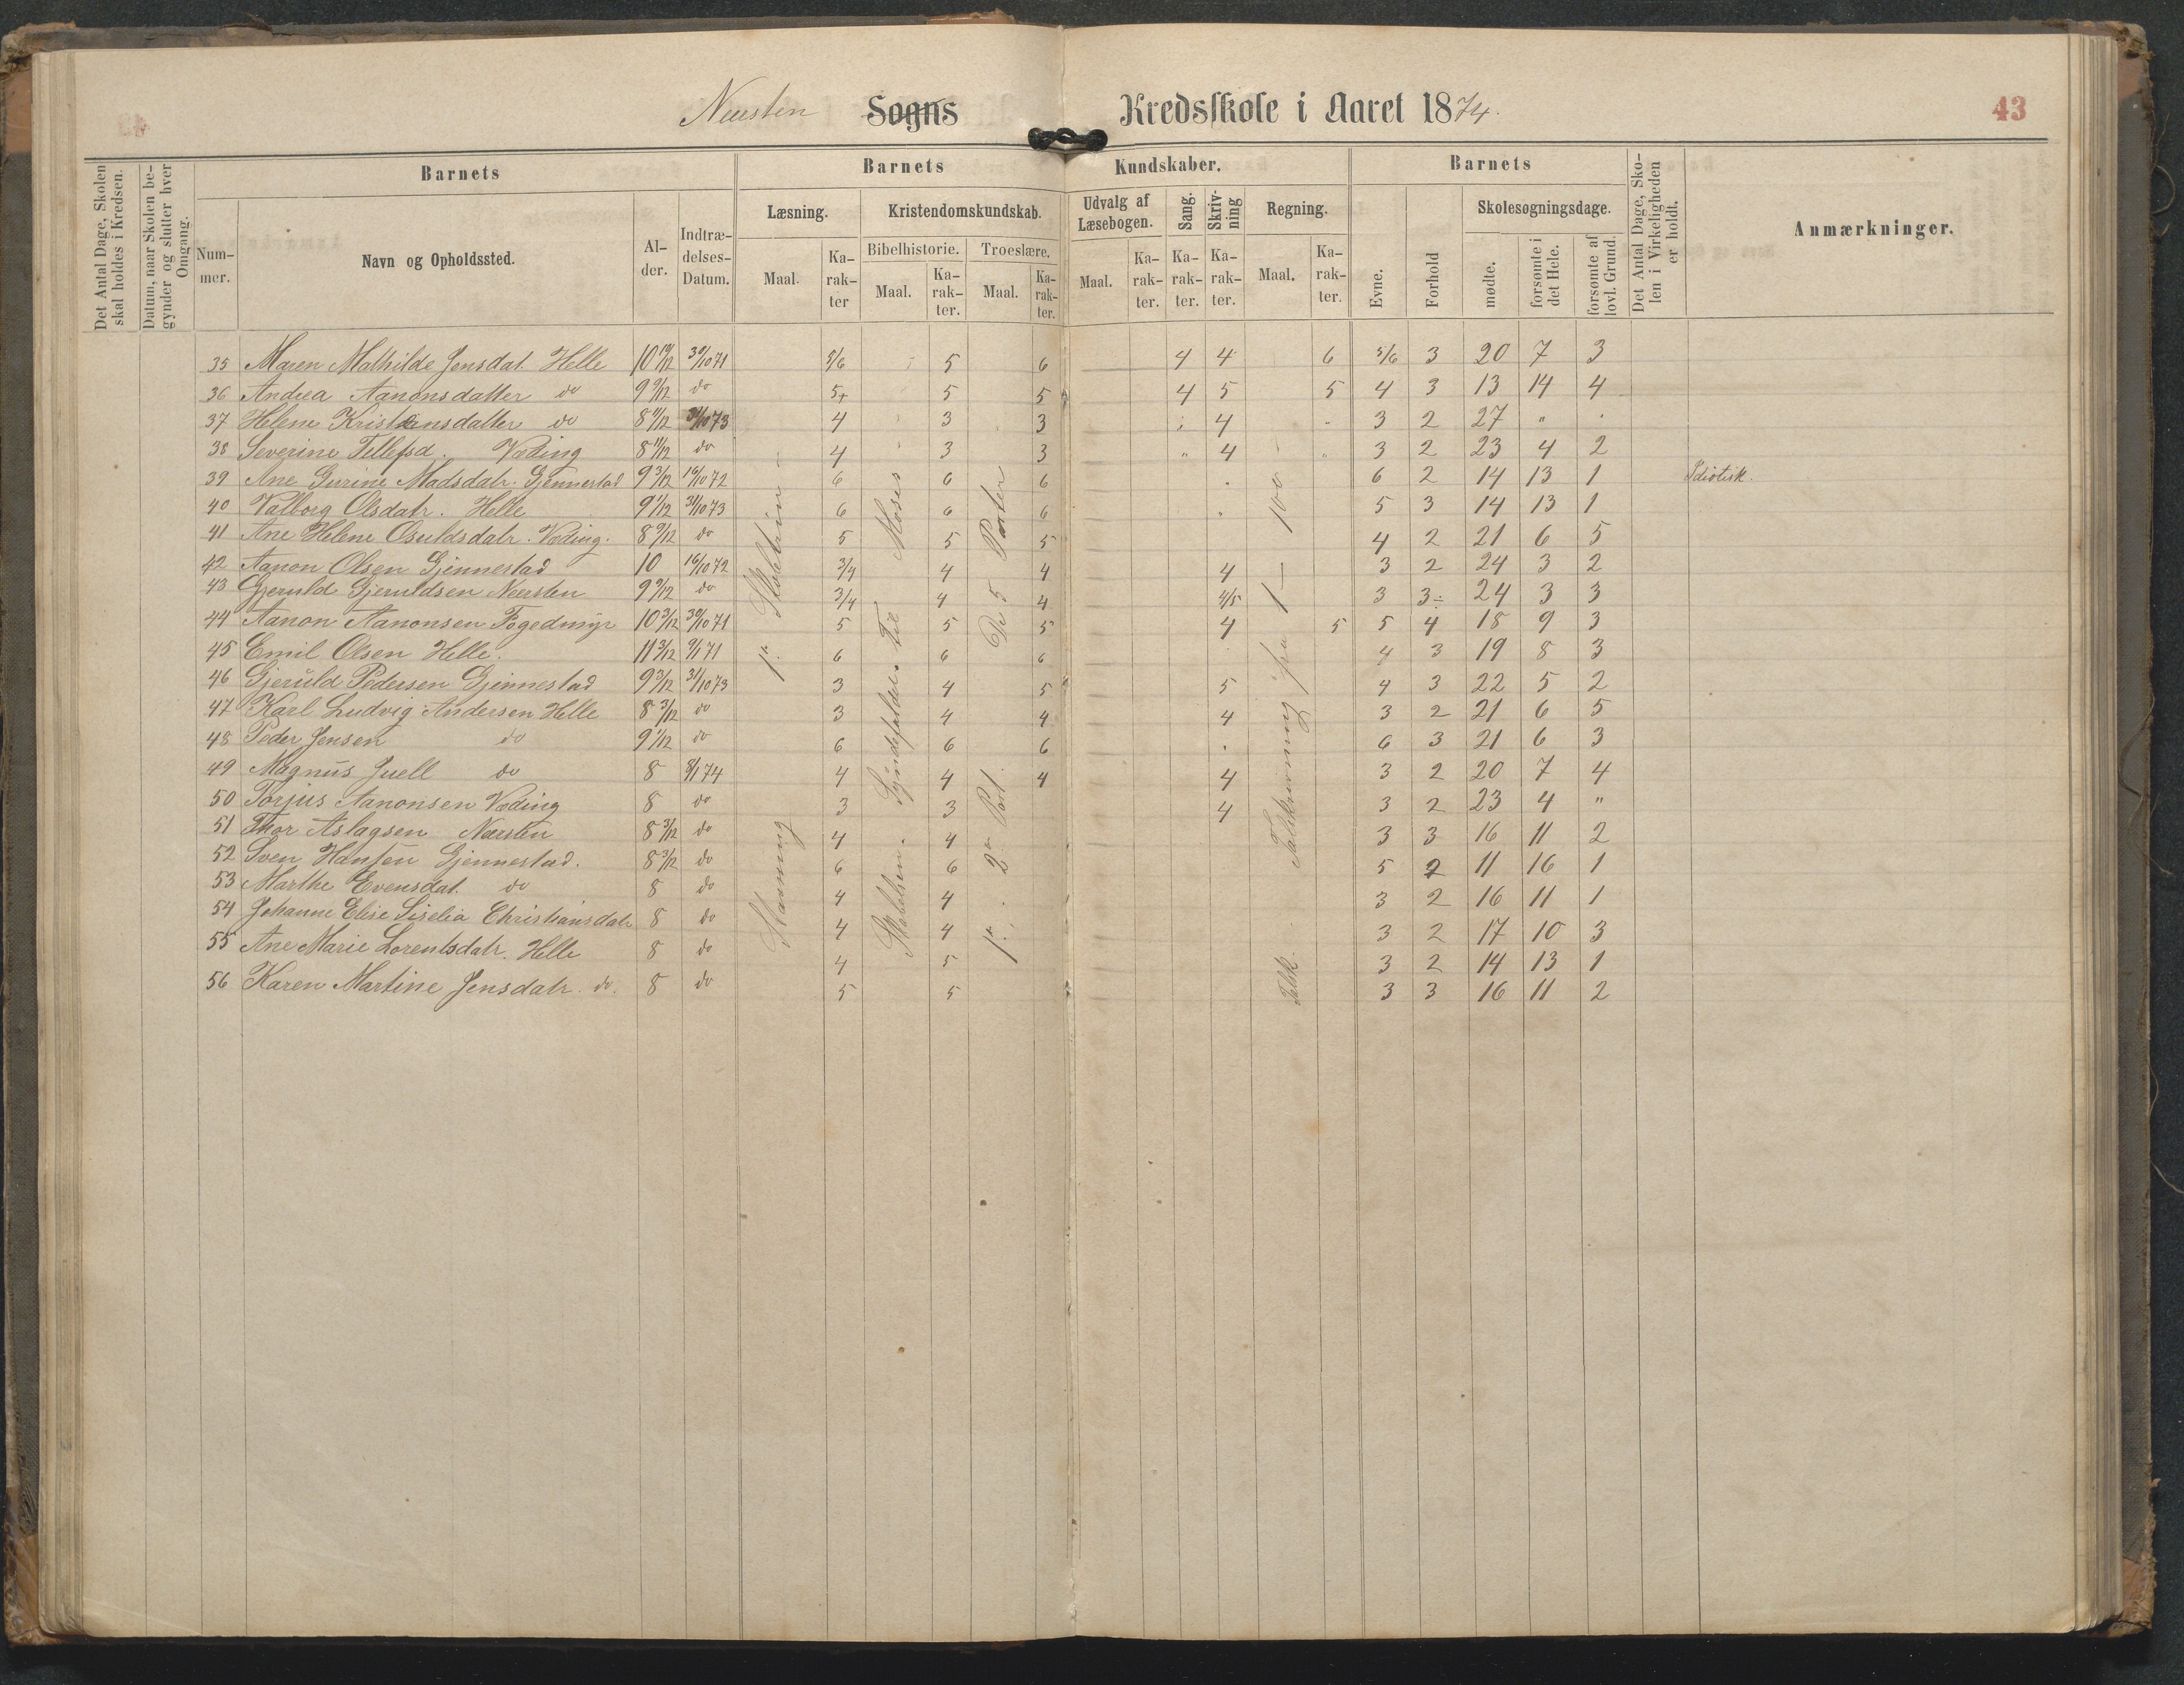 Næsten Sogns Kredsskole i Aaret 1874. 43
Det Antal Dage, Skolen skal holdes i Kredsen.
Datum, naar Skolen begynder og slutter hver Omgang.
Barnets
Nummer.
Navn og Opholdssted.
Alder.
Indtrædelses-Datum.
Barnets Kundskaber.
Læsning.
Maal. Karakter
Kristendomskundskab.
Bibelhistorie. Troeslære.
Maal. Karakter. Maal. Karakter.
Udvalg af Læsebogen.
Maal. Karakter.
Sang. Karakter.
Skrivning Karakter.
Regning.
Maal. Karakter.
Barnets
Evne.
Forhold
Skolesøgningsdage.
mødte. forsømte i det Hele. forsømte af lovl. Grund.
Det Antal Dage, Skolen i Virkeligheden er holdt.
Anmærkninger.
35 Maren Mathilde Jensdat. Helle 10 10/12 30/10 71 5/6 5 6 4 4 6 5/6 3 20 7 3
36 Andrea Aanonsdatter do 9 9/12 do 5+ 5 5 4 5 5 4 3 13 14 4
37 Helene Kristiansdatter do 8 11/12 31/10 73 4 3 3 4 3 2 27 "
38 Severine Tellefsd. Væding 8 11/12 do 4 3 3 " 4 " 3 2 23 4 2
39 Ane Gurine Madsdatr. Gjennestad 9 3/12 16/10 72 6 6 6 6 2 14 13 1 Idiotisk.
40 Valborg Olsdatr. Helle 9 1/12 31/10 73 6 6 6 5 3 14 13 1
41 Ane Helene Osuldsdatr. Væding. 8 9/12 do 5 5 5 4 2 21 6 5
42 Aanon Olsen Gjennestad 10 16/10 72 3/4 4 4 4 3 2 24 3 2
43 Gjeruld Gjeruldsen Næsten 9 9/12 do 3/4 4 4 4/5 3 3÷ 24 3 3
44 Aanon Aanonsen Fogedmyr 10 3/12 30/10 71 5 5 5 4 5 5 4 18 9 3
45 Emil Olsen Helle. 11 3/12 9/1 71 6 6 6 4 3 19 8 3
46 Gjeruld Pedersen Gjennestad 9 3/12 31/10 73 3 4 5 5 4 3 22 5 2
47 Karl Ludvig Andersen Helle 8 3/12 do 3 4 4 4 3 2 21 6 5
48 Peder Jensen do 9 1/12 do 6 6 6 6 3 21 6 3
49 Magnus Juell do 8 8/1 74 4 4 4 4 3 2 20 7 4
50 Torjus Aanonsen Væding 8 do 3 3 4 3 2 23 4 "
51 Thor Aslagsen Næsten 8 3/12 do 4 4 3 3 16 11 2
52 Sven Hansen Gjennestad. 8 3/12 do 6 6 5 2 11 16 1
53 Marthe Evensdat. do 8 do 4 4 3 2 16 11 1
54 Johanne Elise Siselia Christiansdatr 8 do 4 4 3 2 17 10 3
55 Ane Marie Lorentsdatr. Helle 8 do 4 5 3 2 14 13 1
56 Karen Martine Jensdatr. do. 8 do 5 5 3 3 16 11 2
Stavning
Skabelsen. Syndefaldet. Til Moses
1ª. 2ª Part. De 5 Parter
Talskrivning fra 1 – 100